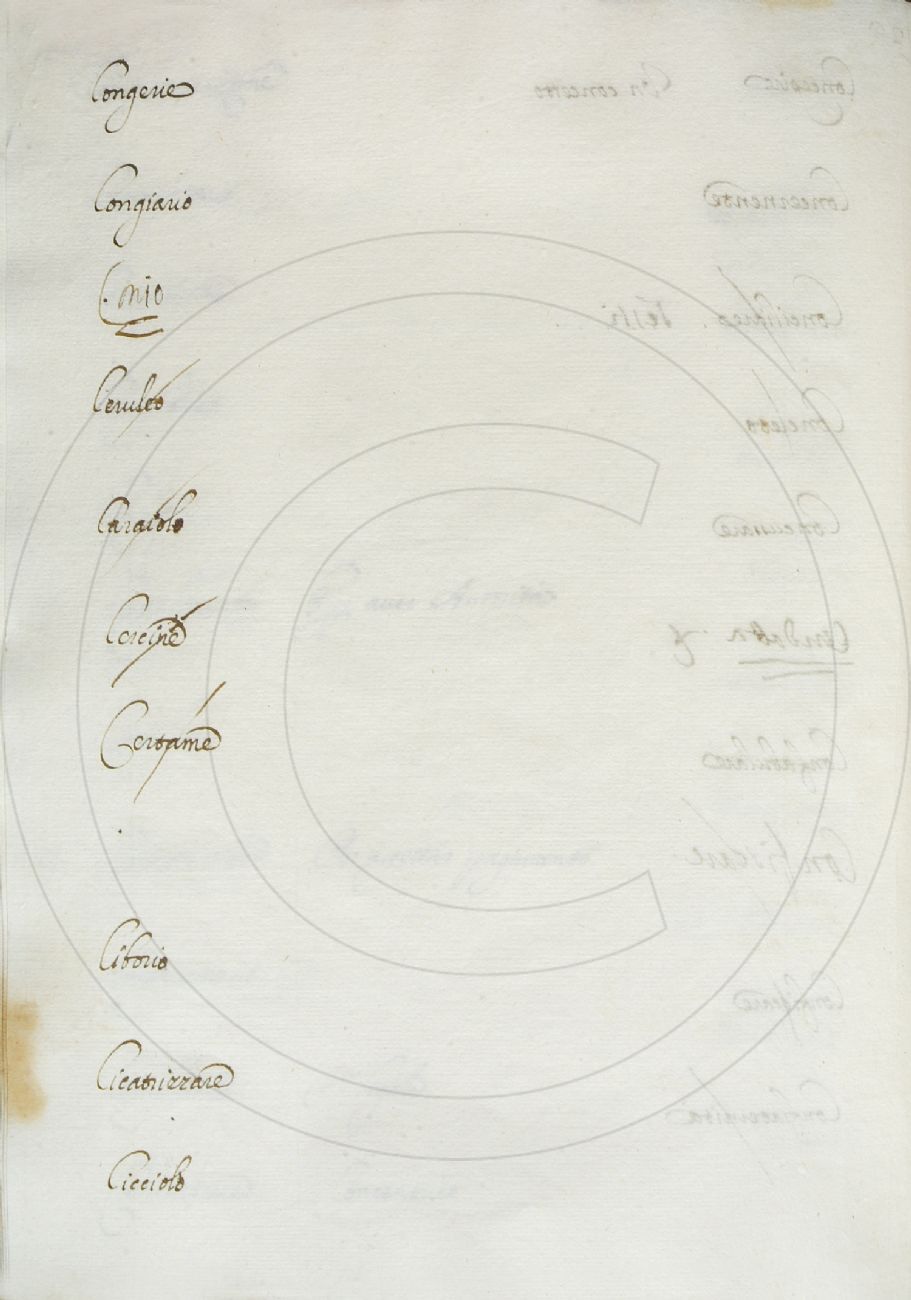 Congerie
Congiario
C. mio
Ceruleo
Caraiolo
Certame
Ciborio
Cicatrizzare
Cicciolo